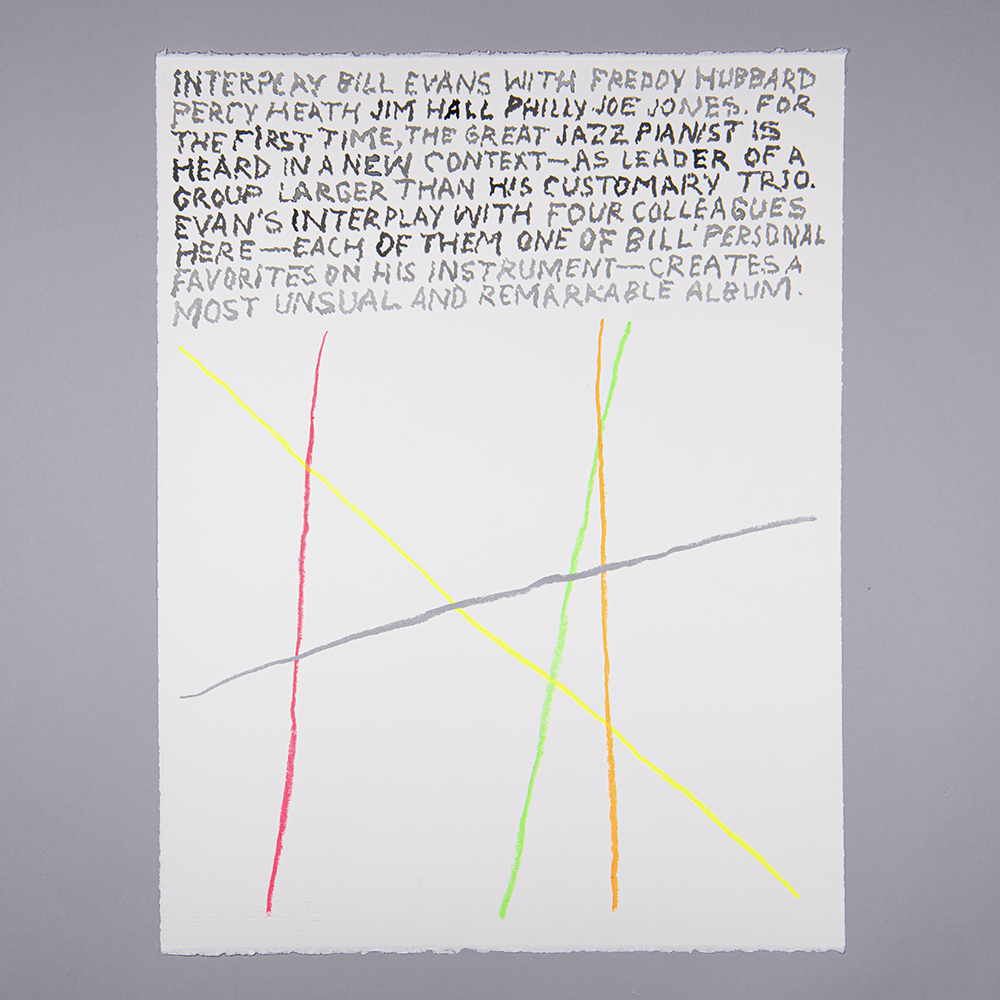 INTERPLAY BILL EVANS WITH FREDDY HUBBARD
PERCY HEATH JIM HALL PHILLY JOE JONES. FOR
THE FIRST TIME, THE GREAT JAZZ PIANIST IS
HEARD IN A NEW CONTEXT—AS LEADER OF A
GROUP LARGER THAN HIS CUSTOMARY TRIO.
EVAN'S INTERPLAY WITH FOUR COLLEAGUES
HERE—EACH OF THEM ONE OF BILL' PERSONAL
FAVORITES ON HIS INSTRUMENT—CREATES A
MOST UNSUAL AND REMARKABLE ALBUM.